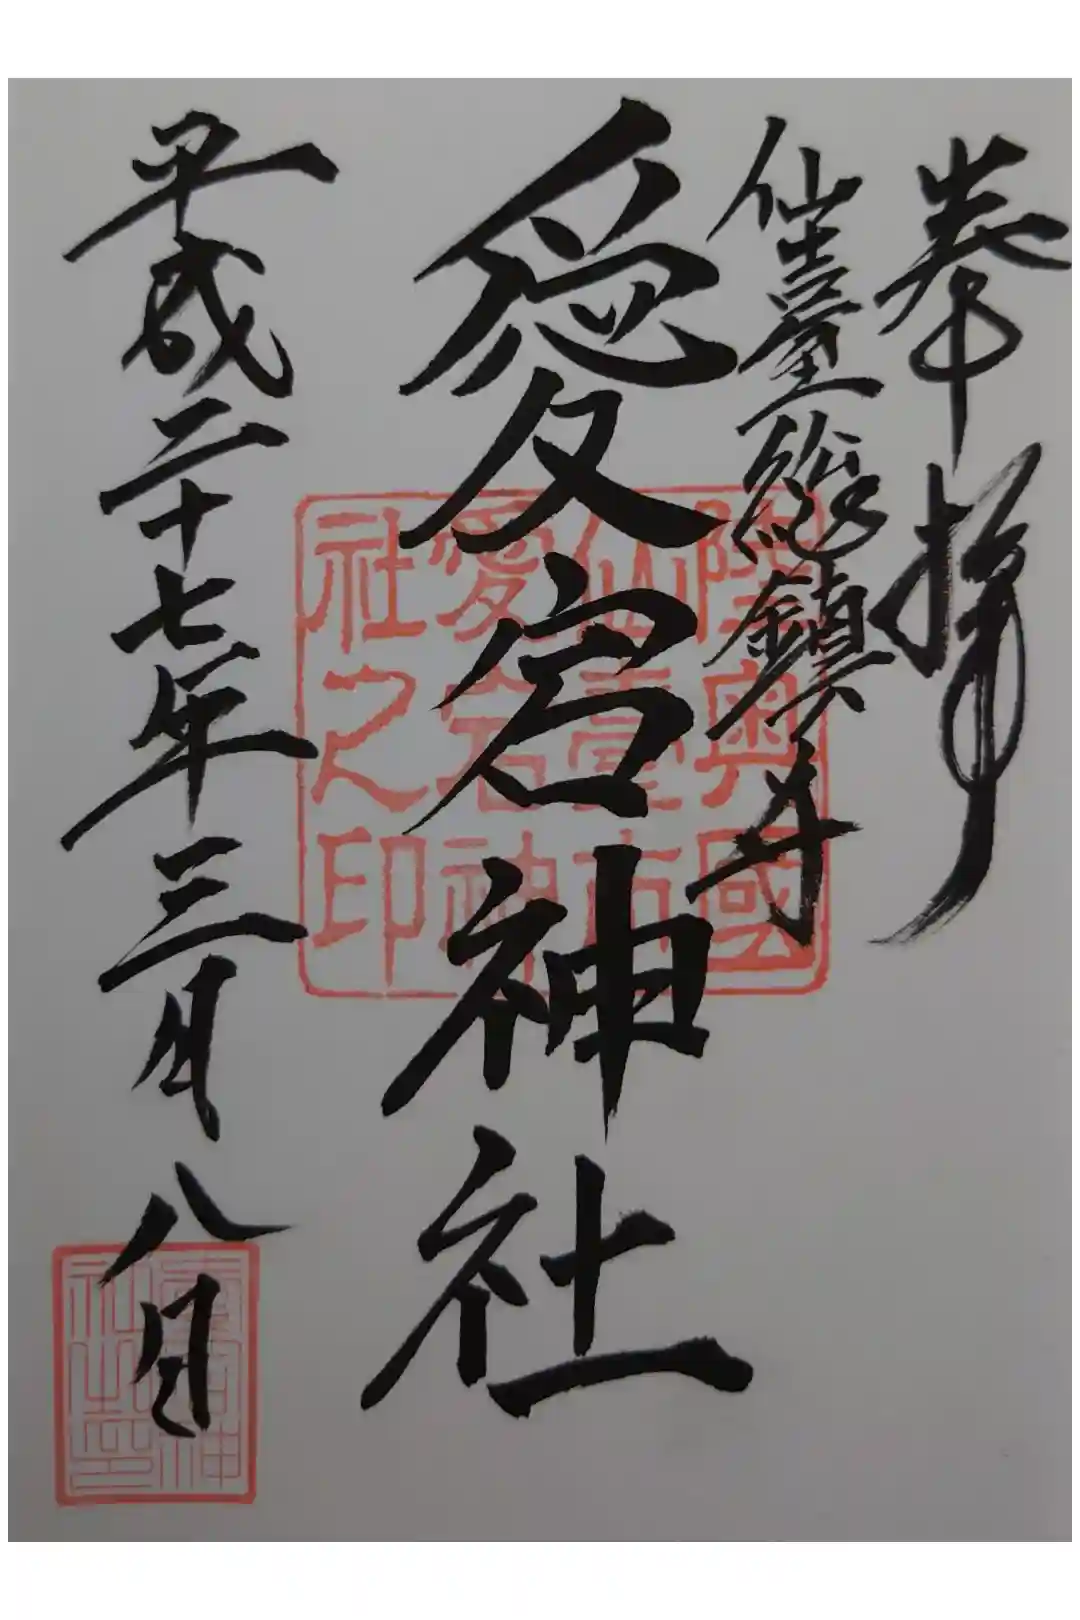 奉拝
仙臺総鎮守
愛宕神社
平成二十七年三月八日
陸奥國
仙臺市
愛宕神
社之印
愛宕神
社之印